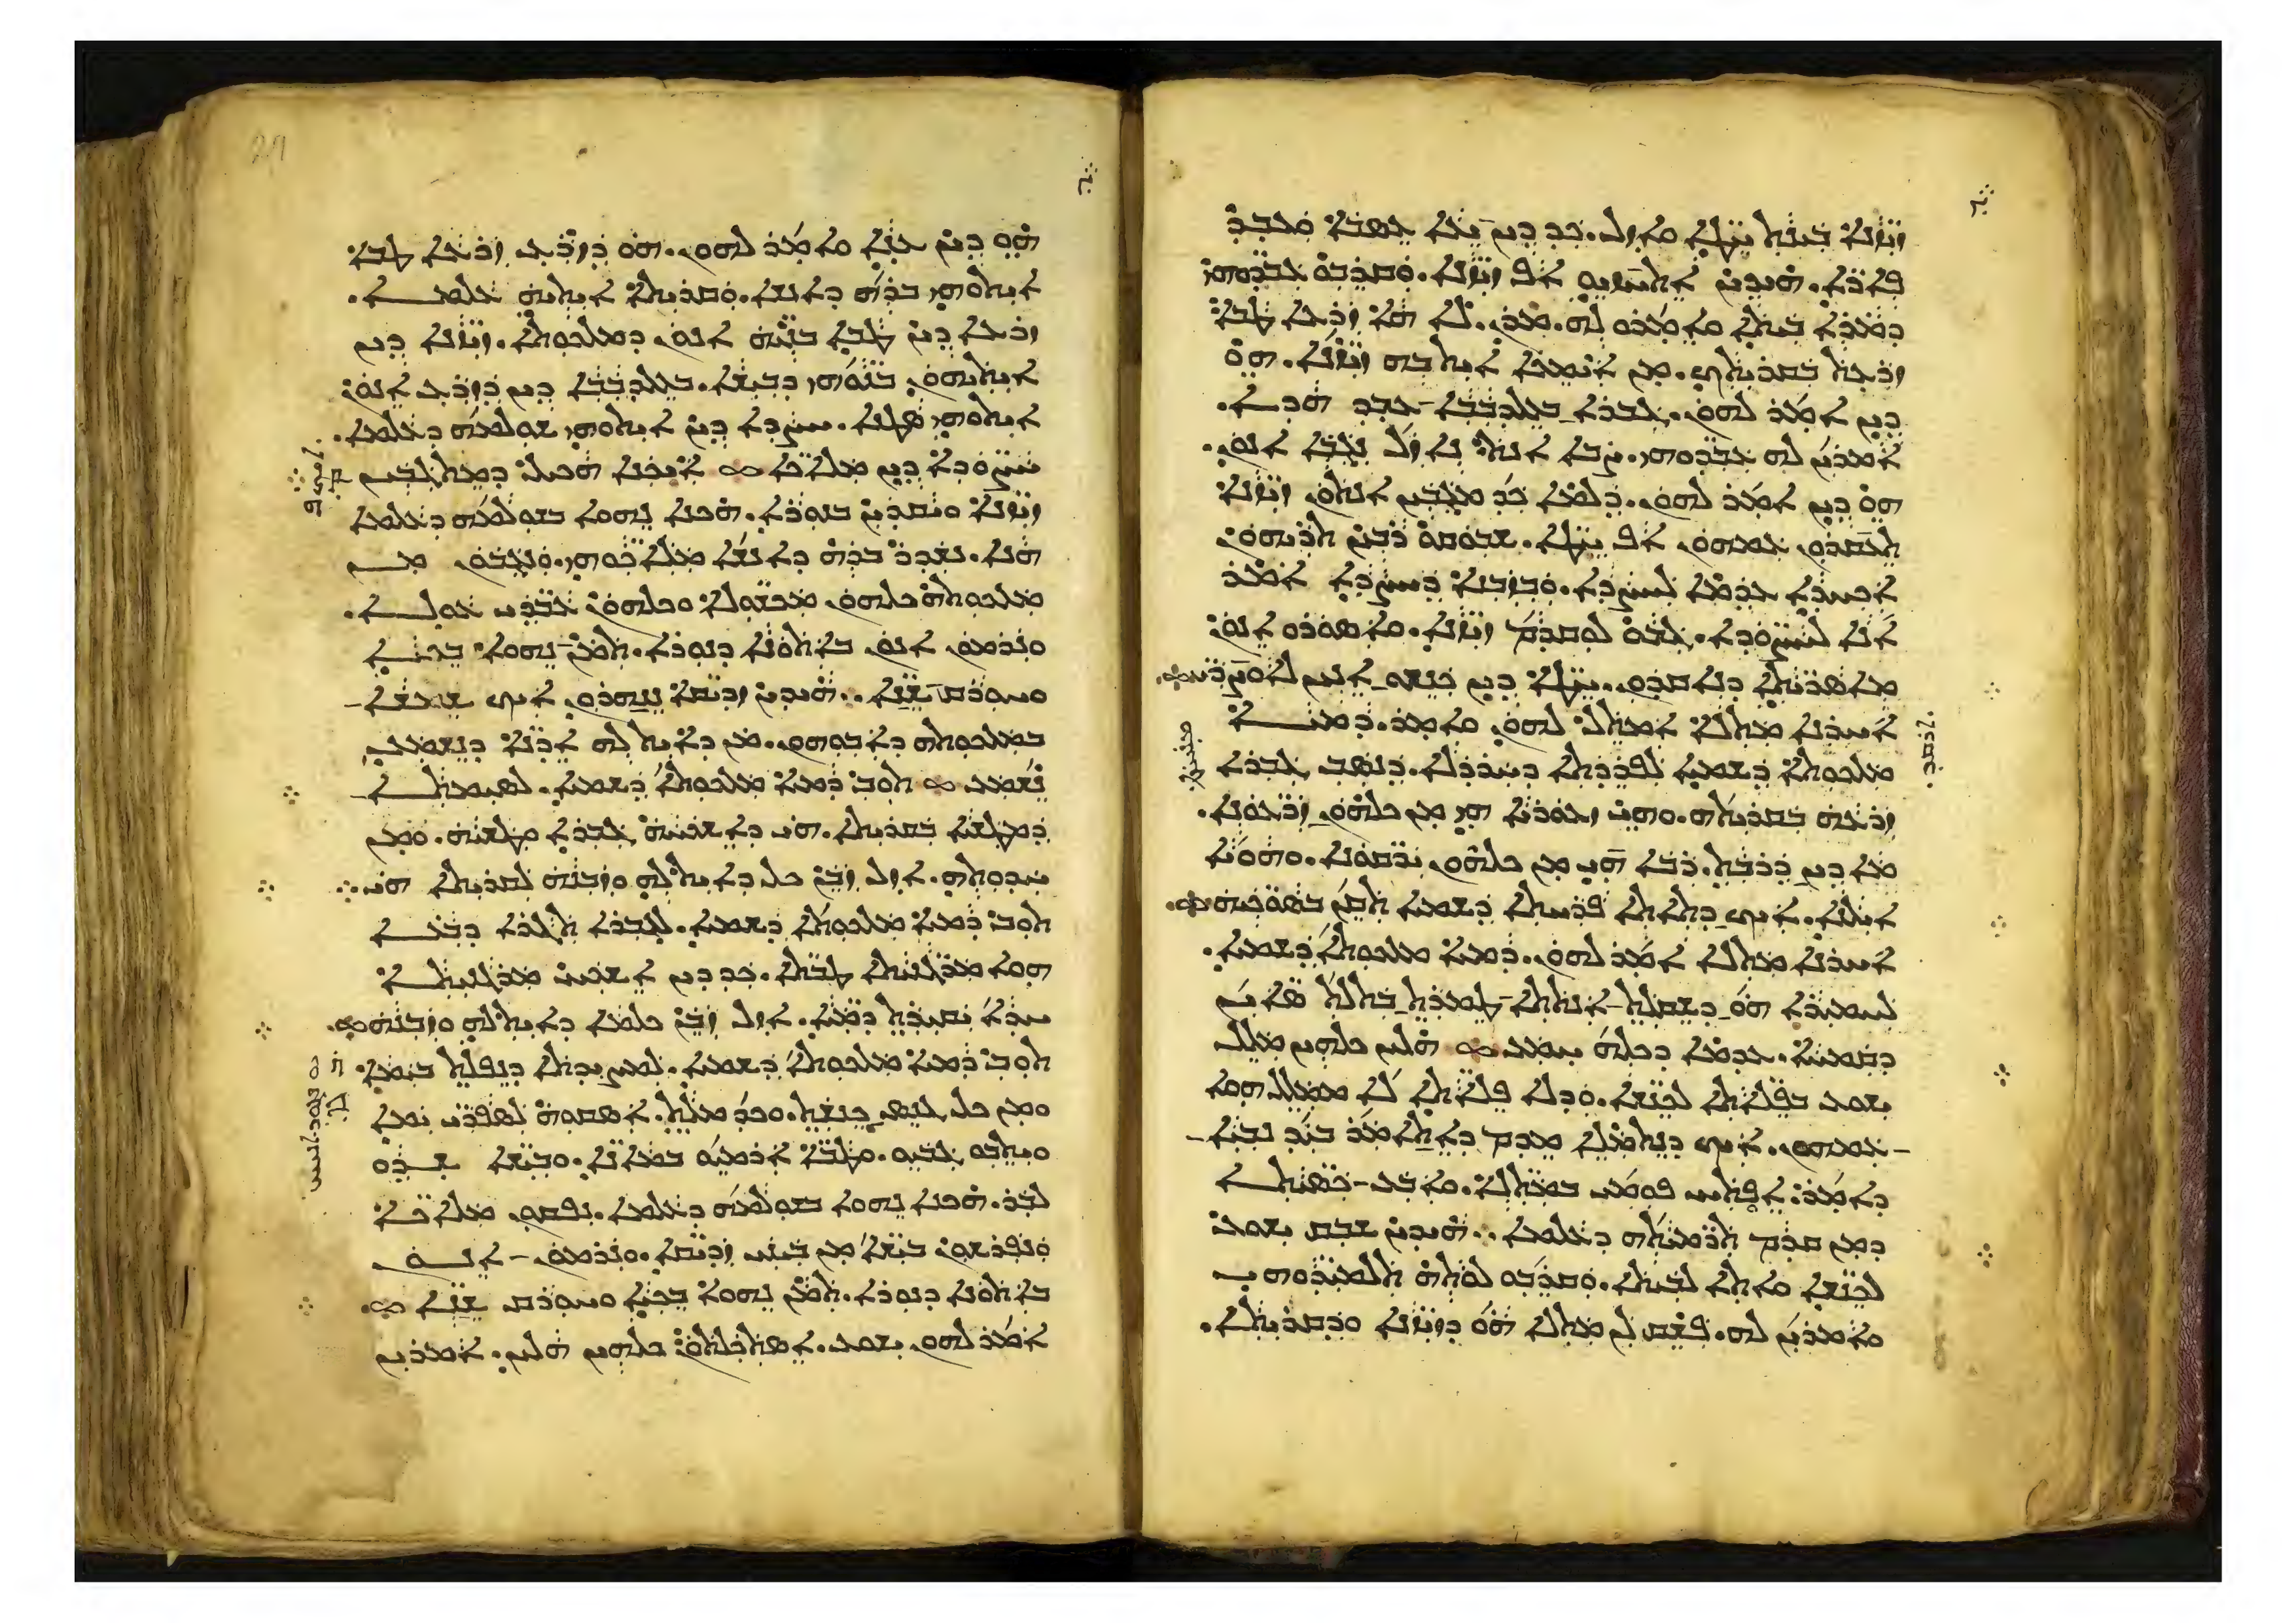 ܙܝܙܢܐ ܒܝܢܬ ܚܛܐ ܘܐܙܠ. ܟܕ ܕܝܢ ܝܥܐ ܥܣܒܐ ܘܥܒܕ
ܦܐܪܐ. ܗܝܕܝܢ ܐܬܚܙܝܘ ܐܦ ܙܝܙܢܐ. ܘܩܪܒܘ ܥܒܕܘܗܝ
ܕܡܪܐ ܒܝܬܐ ܘܐܡܪܘ ܠܗ. ܡܪܢ. ܠܐ ܗܐ ܙܪܥܐ ܛܒܐ
ܙܪܥܬ ܒܩܪܝܬܟ. ܡܢ ܐܝܡܟܐ ܐܝܬ ܒܗ ܙܝܙܢܐ. ܗܘ
ܕܝܢ ܐܡܪ ܠܗܘܢ. ܓܒܪܐ ܒܥܠܕܒܒܐ ܥܒܕ ܗܕܐ.
ܐܡܪܝܢ ܠܗ ܥܒܕܘܗܝ. ܨܒܐ ܐܢܬ ܢܐܙܠ ܢܓܒܐ ܐܢܘܢ.
ܗܘ ܕܝܢ ܐܡܪ ܠܗܘܢ. ܕܠܡܐ ܟܕ ܡܓܒܝܢ ܐܢܬܘܢ ܙܝܙܢܐ
ܬܥܩܪܘܢ ܥܡܗܘܢ ܐܦ ܚܛܐ. ܫܒܘܩܘ ܪܒܝܢ ܬܪܝܗܘܢ
ܐܟܚܕܐ ܥܕܡܐ ܠܚܨܕܐ. ܘܒܙܒܢܐ ܕܚܨܕܐ ܐܡܪ
ܐܢܐ ܠܚܨܘܕܐ. ܓܒܘ ܠܘܩܕܡ ܙܝܙܢܐ. ܘܐܣܘܪܘ ܐܢܘܢ
ܡܐܣܪܝܬܐ ܕܢܐܩܕܘܢ. ܚܛܐ ܕܝܢ ܟܢܫܘ ܐܢܝܢ ܠܐܘܨܪܝ
ܐܚܪܢܐ ܡܬܠܐ ܐܡܬܠ ܠܗܘܢ ܘܐܡܪ. ܕܡܝܐ
ܡܠܟܘܬܐ ܕܫܡܝܐ ܠܦܪܕܬܐ ܕܚܪܕܠܐ. ܕܢܣܒ ܓܒܪܐ
ܙܪܥܗ ܒܩܪܝܬܗ. ܘܗܝ ܙܥܘܪܝܐ ܗܝ ܡܢ ܟܠܗܘܢ ܙܪܥܘܢܐ.
ܡܐ ܕܝܢ ܕܪܒܬ. ܪܒܐ ܗܝ ܡܢ ܟܠܗܘܢ ܝܪܩܘܢܐ. ܘܗܘܝܐ
ܐܝܠܢܐ. ܐܝܟ ܕܬܐܬܐ ܦܪܚܬܐ ܕܫܡܝܐ ܬܩܢ ܒܣܘܟܝܗ
ܐܚܪܢܐ ܡܬܠܐ ܐܡܪ ܠܗܘܢ. ܕܡܝܐ ܡܠܟܘܬܐ ܕܫܡܝܐ.
ܠܚܡܝܪܐ ܗܘ ܕܫܩܠܬ ܐܢܬܬܐ ܛܡܪܬ ܒܬܠܬ ܣܐܝܢ
ܕܩܡܚܐ. ܥܕܡܐ ܕܟܠܗ ܚܡܥ ܗܠܝܢ ܟܠܗܝܢ ܡܠܠ
ܝܫܘܥ ܒܦܠܐܬܐ ܠܟܢܫܐ. ܘܕܠܐ ܦܠܐܬܐ ܠܐ ܡܡܠܠ ܗܘܐ
ܥܡܗܘܢ. ܐܝܟ ܕܢܬܡܠܐ ܡܕܡ ܕܐܬܐܡܪ ܒܝܕ ܢܒܝܐ
ܕܐܡܪ. ܐܦܬܚ ܦܘܡܝ ܒܡܬܠܐ. ܘܐܒܥ ܟܣܝܬܐ
ܕܡܢ ܩܕܡ ܬܪܡܝܬܗ ܕܥܠܡܐ. ܗܝܕܝܢ ܫܒܩ ܝܫܘܥ
ܠܟܢܫܐ ܘܐܬܐ ܠܒܝܬܐ. ܘܩܪܒܘ ܠܘܬܗ ܬܠܡܝܕܘܗܝ
ܘܐܡܪܝܢ ܠܗ. ܦܫܩ ܠܢ ܡܬܠܐ ܗܘ ܕܙܝܙܢܐ ܘܕܩܪܝܬܐ.
ܗܘ ܕܝܢ ܥܢܐ ܘܐܡܪ ܠܗܘܢ. ܗܘ ܕܙܪܥ ܙܪܥܐ ܛܒܐ
ܐܝܬܘܗܝ ܒܪܗ ܕܐܢܫܐ. ܘܩܪܝܬܐ ܐܝܬܝܗ ܥܠܡܐ.
ܙܪܥܐ ܕܝܢ ܛܒܐ ܒܢܝܗ ܐܢܘܢ ܕܡܠܟܘܬܐ. ܙܝܙܢܐ ܕܝܢ
ܐܝܬܝܗܘܢ ܒܢܘܗܝ ܕܒܝܫܐ. ܒܥܠܕܒܒܐ ܕܝܢ ܕܙܪܥ ܐܢܘܢ
ܐܝܬܘܗܝ ܣܛܢܐ. ܚܨܕܐ ܕܝܢ ܐܝܬܘܗܝ ܫܘܠܡܗ ܕܥܠܡܐ.
ܚܨܘܕܐ ܕܝܢ ܡܠܐܟܐ ܐܝܟܢܐ ܗܟܝܠ ܕܡܬܓܒܝܢ
ܙܝܙܢܐ ܘܝܩܕܝܢ ܒܢܘܪܐ. ܗܟܢܐ ܢܗܘܐ ܒܫܘܠܡܗ ܕܥܠܡܐ
ܗܢܐ. ܢܫܕܪ ܒܪܗ ܕܐܢܫܐ ܡܠܐܟܘܗܝ. ܘܢܓܒܘܢ ܡܢ
ܡܠܟܘܬܗ ܟܠܗܘܢ ܡܟܫܘܠܐ ܘܟܠܗܘܢ ܥܒܕܝ ܥܘܠܐ.
ܘܢܪܡܘܢ ܐܢܘܢ ܒܐܬܘܢܐ ܕܢܘܪܐ. ܬܡܢ ܢܗܘܐ ܒܟܝܐ
ܘܚܘܪܩ ܫܢܐ. ܗܝܕܝܢ ܙܕܝܩܐ ܢܢܗܪܘܢ ܐܝܟ ܫܡܫܐ
ܒܡܠܟܘܬܗ ܕܐܒܘܗܘܢ. ܡܢ ܕܐܝܬ ܠܗ ܐܕܢܐ ܕܢܫܡܥ
ܢܫܡܥ ܬܘܒ ܕܡܝܐ ܡܠܟܘܬܐ ܕܫܡܝܐ. ܠܣܝܡܬܐ
ܕܡܛܫܝܐ ܒܩܪܝܬܐ. ܗܝ ܕܐܫܟܚܗ ܓܒܪܐ ܘܛܫܝܗ. ܘܡܢ
ܚܕܘܬܗ. ܐܙܠ ܙܒܢ ܟܠ ܕܐܝܬ ܠܗ ܘܙܒܢܗ ܠܩܪܝܬܐ ܗܝ
ܬܘܒ ܕܡܝܐ ܡܠܟܘܬܐ ܕܫܡܝܐ. ܠܓܒܪܐ ܬܓܪܐ ܕܒܥܐ
ܗܘܐ ܡܪܓܢܝܬܐ ܛܒܬܐ. ܟܕ ܕܝܢ ܐܫܟܚ ܡܪܓܢܝܬܐ
ܚܕܐ ܝܩܝܪܬ ܕܡܝܐ. ܐܙܠ ܙܒܢ ܟܠܡܐ ܕܐܝܬ ܠܗ ܘܙܒܢܗ
ܬܘܒ ܕܡܝܐ ܡܠܟܘܬܐ ܕܫܡܝܐ. ܠܡܨܝܕܬܐ ܕܢܦܠܬ ܒܝܡܐ
ܘܡܢ ܟܠ ܓܢܣ ܟܢܫܬ. ܘܟܕ ܡܠܬ. ܐܣܩܘܗ ܠܣܦܪܝ ܝܡܐ
ܘܝܬܒܘ ܓܒܝܘ. ܘܛܒܐ ܐܪܡܝܘ ܒܡܐܢܐ. ܘܒܝܫܐ ܫܕܘ
ܠܒܪ. ܗܟܢܐ ܢܗܘܐ ܒܫܘܠܡܗ ܕܥܠܡܐ. ܢܦܩܘܢ ܡܠܐܟܐ
ܘܢܦܪܫܘܢ ܒܝܫܐ ܡܢ ܒܝܢܝ ܙܕܝܩܐ. ܘܢܪܡܘܢ ܐܢܘܢ
ܒܐܬܘܢܐ ܕܢܘܪܐ. ܬܡܢ ܢܗܘܐ ܒܟܝܐ ܘܚܘܪܩ ܫܢܐ
ܐܡܪ ܠܗܘܢ ܝܫܘܥ. ܐܣܬܟܠܬܘܢ ܟܠܗܝܢ ܗܠܝܢ. ܐܡܪܝܢ